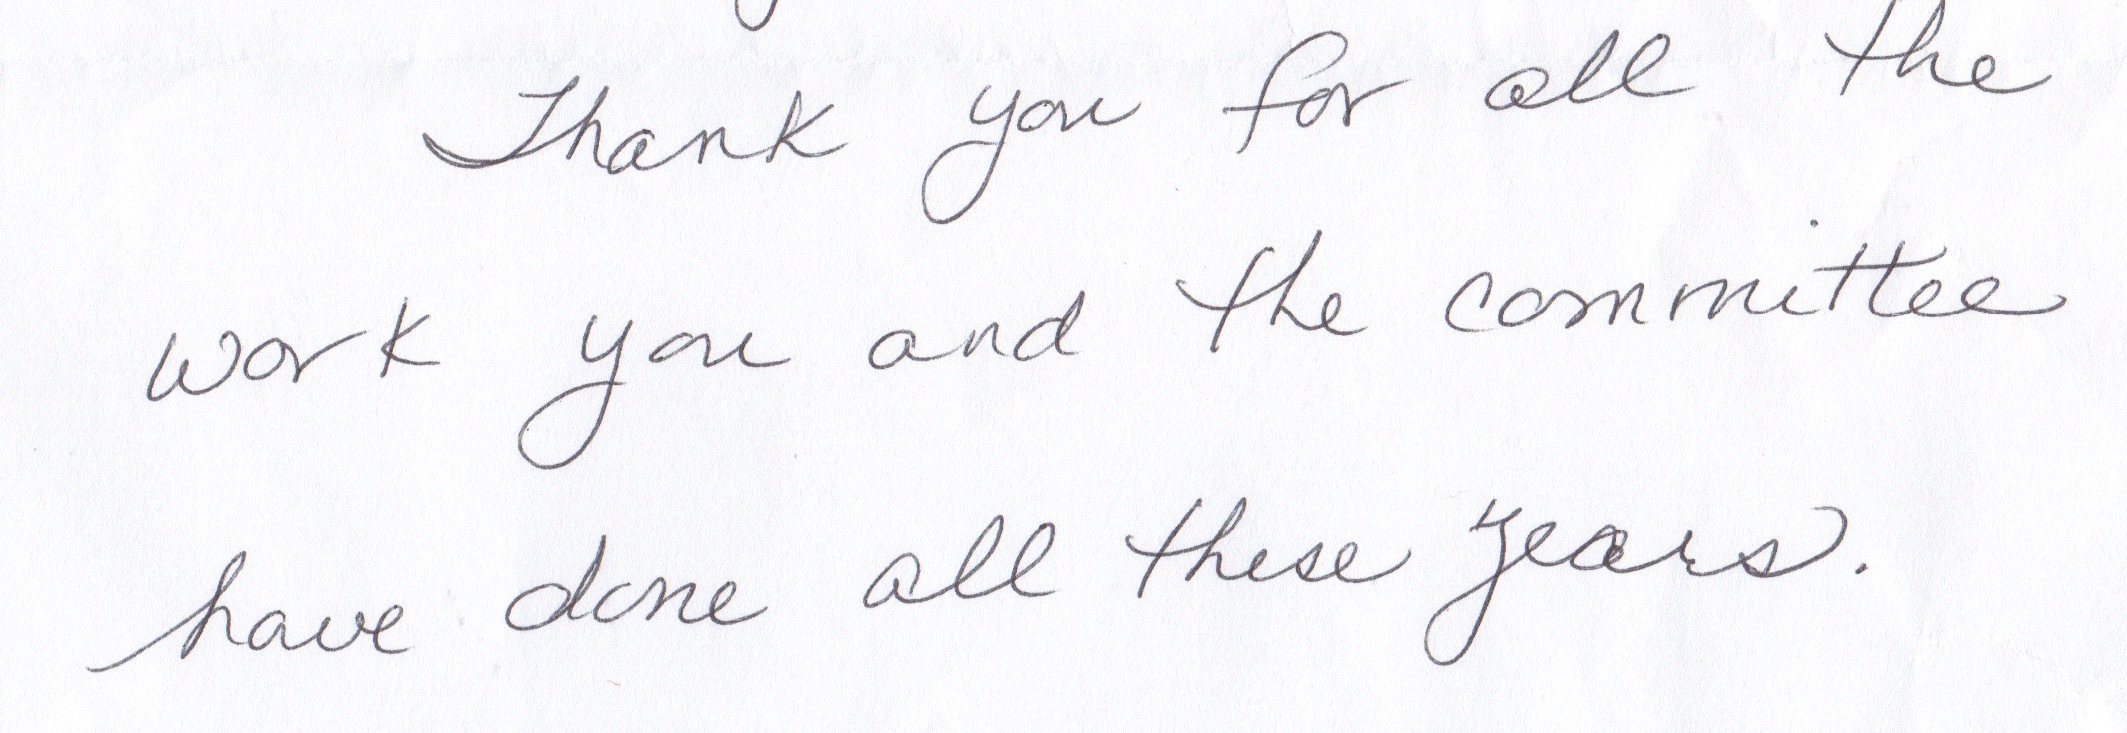 Thank you for all the
work you and the committee
have done all these years.